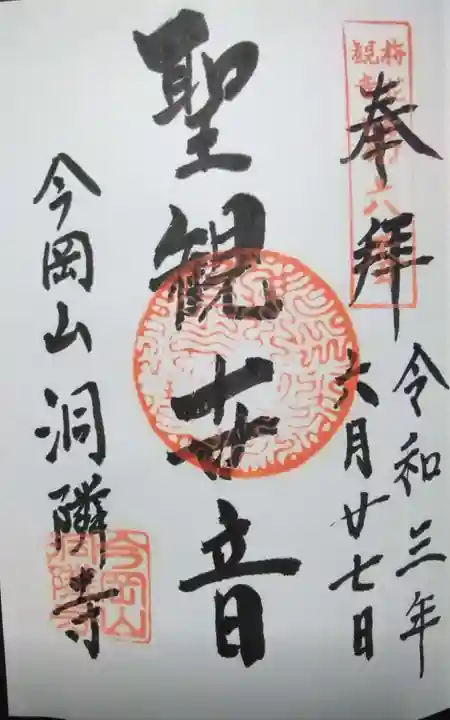 奉拝
令和三年
六月廿七日
聖観世音
今岡山洞隣寺
今岡山
洞隣寺